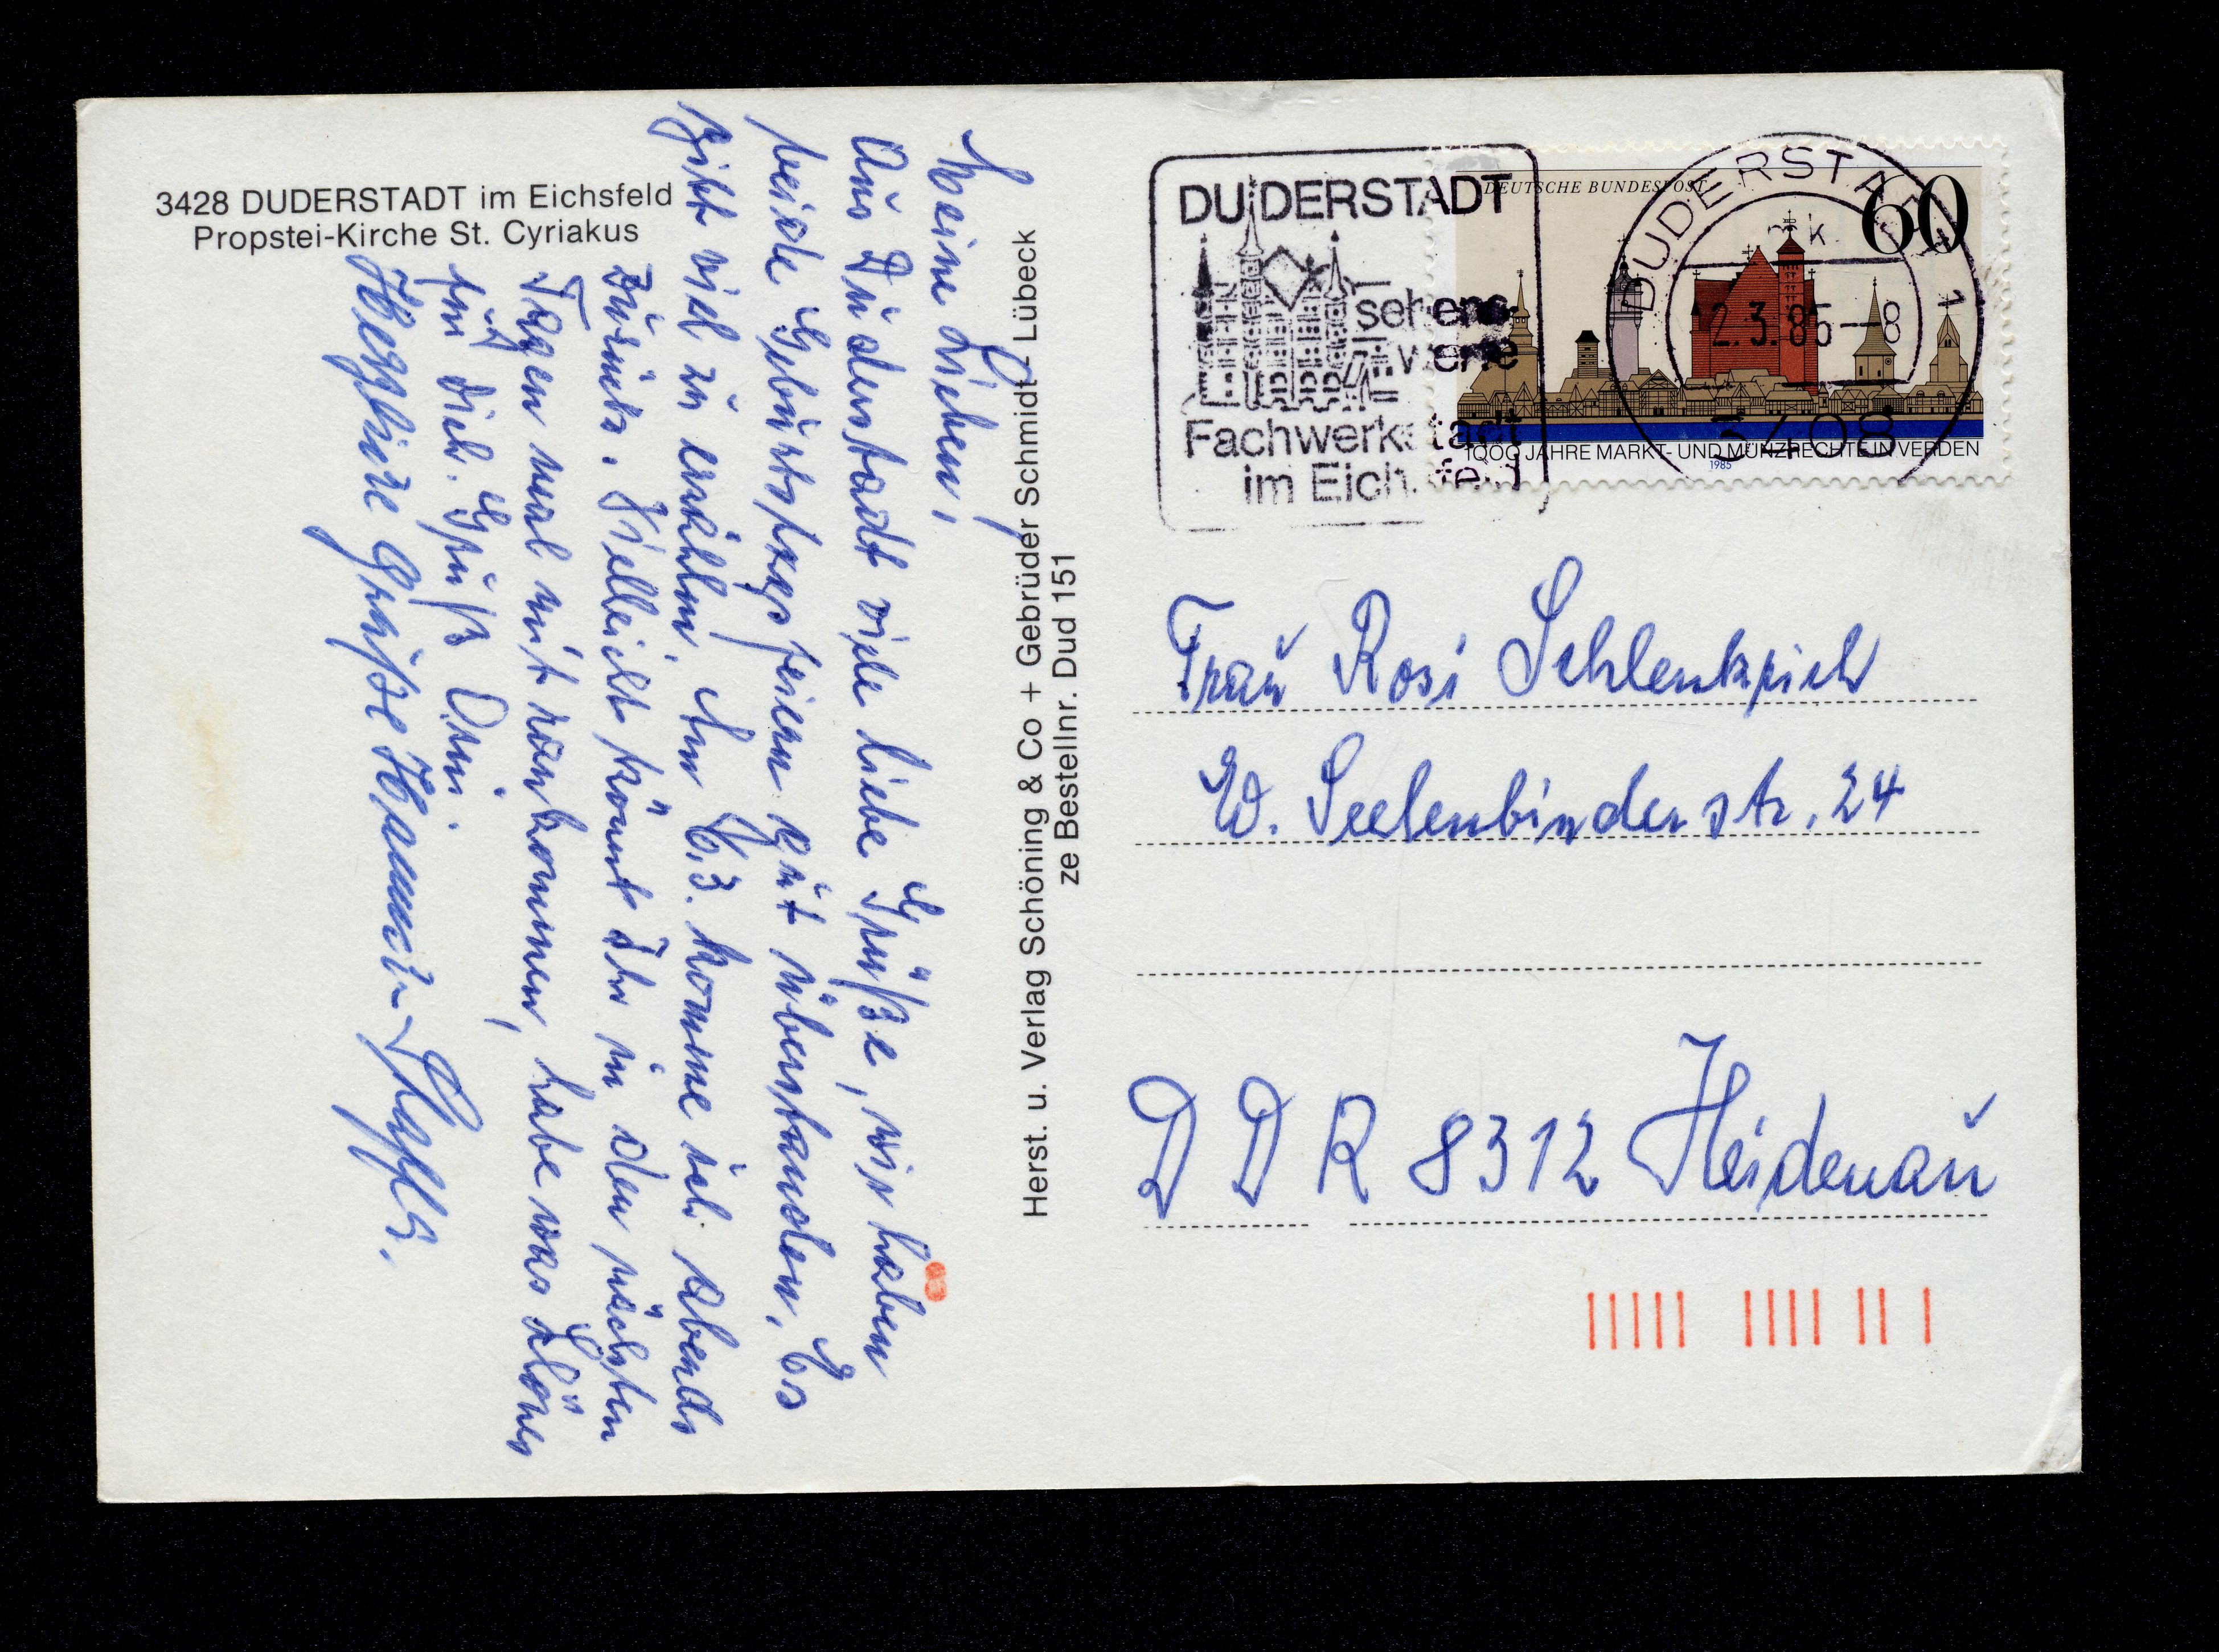 3428 DUDERSTADT im Eichsfeld
Propstei-Kirche St. Cyriakus
Meine Lieben,
Aus Duderstadt viele liebe Grüße, wir haben
beide Geburtstagsfeiern gut überstanden. Es
gibt viel zu erzählen. Am 6.3. komme ich abends
zurück. Vielleicht könnt Ihr in den nächsten
Tagen mal mit rankommen, habe was
für dich. Gruß Omi
Herzliche Grüße
Herst. u. Verlag Schöning & Co + Gebrüder Schmidt - Lübeck
ze Bestellnr. Dud 151
DUDERSTADT
sehens-
werte
Fachwerkstadt
im Eichsfeld
DEUTSCHE BUNDESPOST
60
1000 JAHRE MARKT- UND MÜNZRECHTE IN VERDEN
1985
DUDERSTADT 1
2.3.85-8
3408
Frau Rosi Schlenkrich
W. Seelenbinderstr. 24
DDR 8312 Heidenau